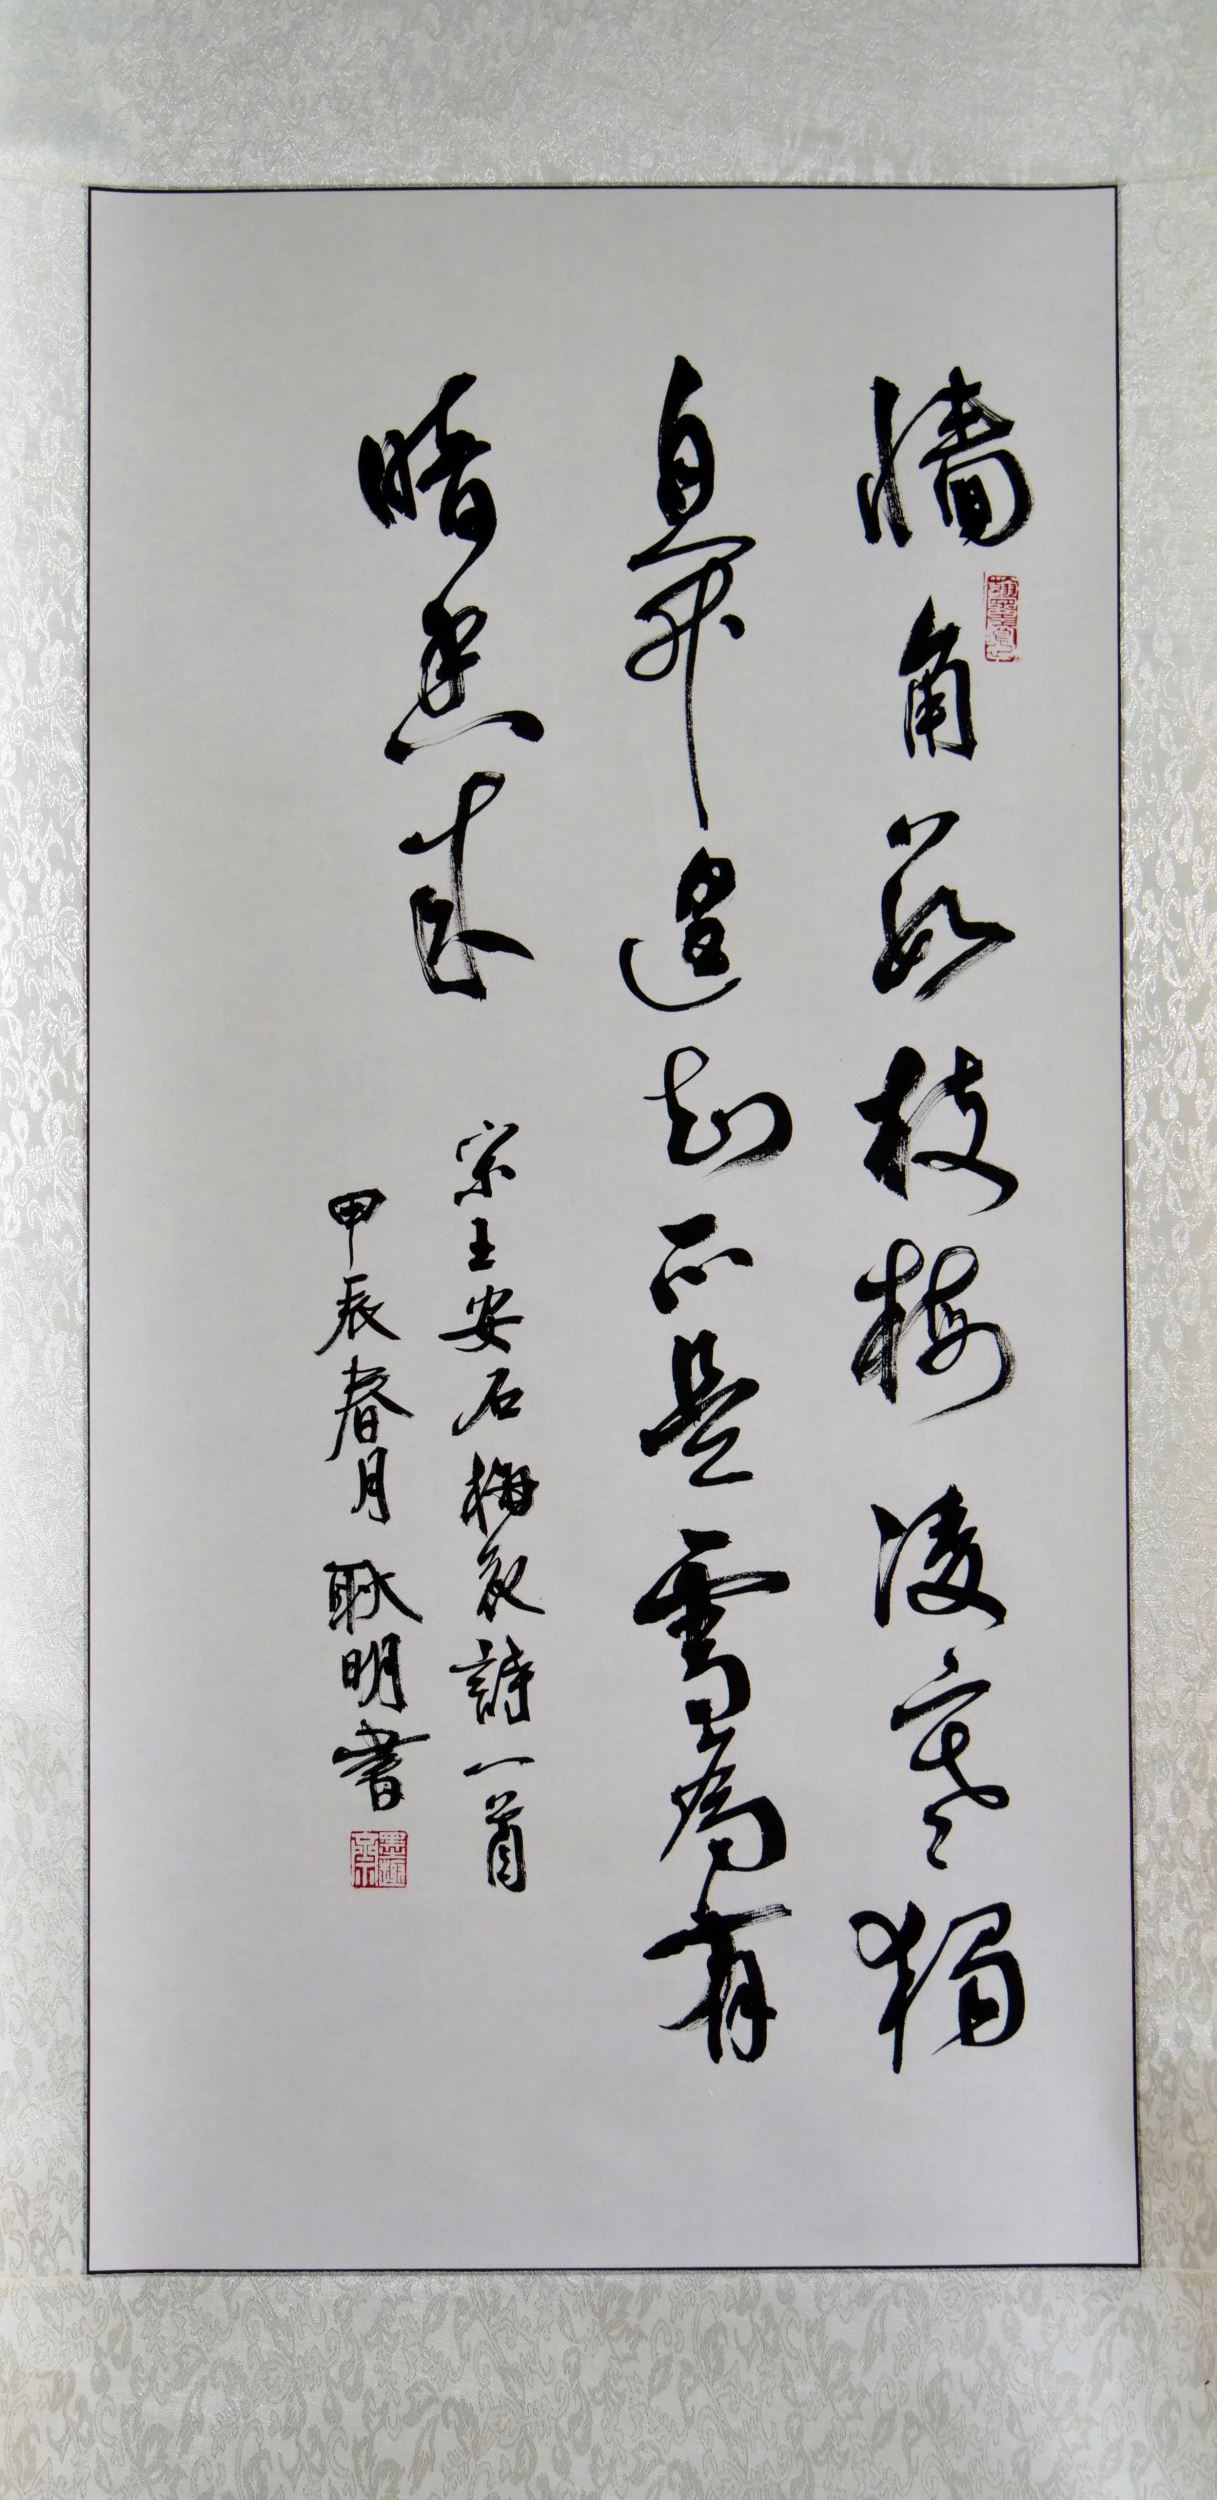 牆角數枝梅凌寒獨
自開遙知不是雪為有
暗香来
宋王安石梅花詩一首
甲辰春月 耿明書